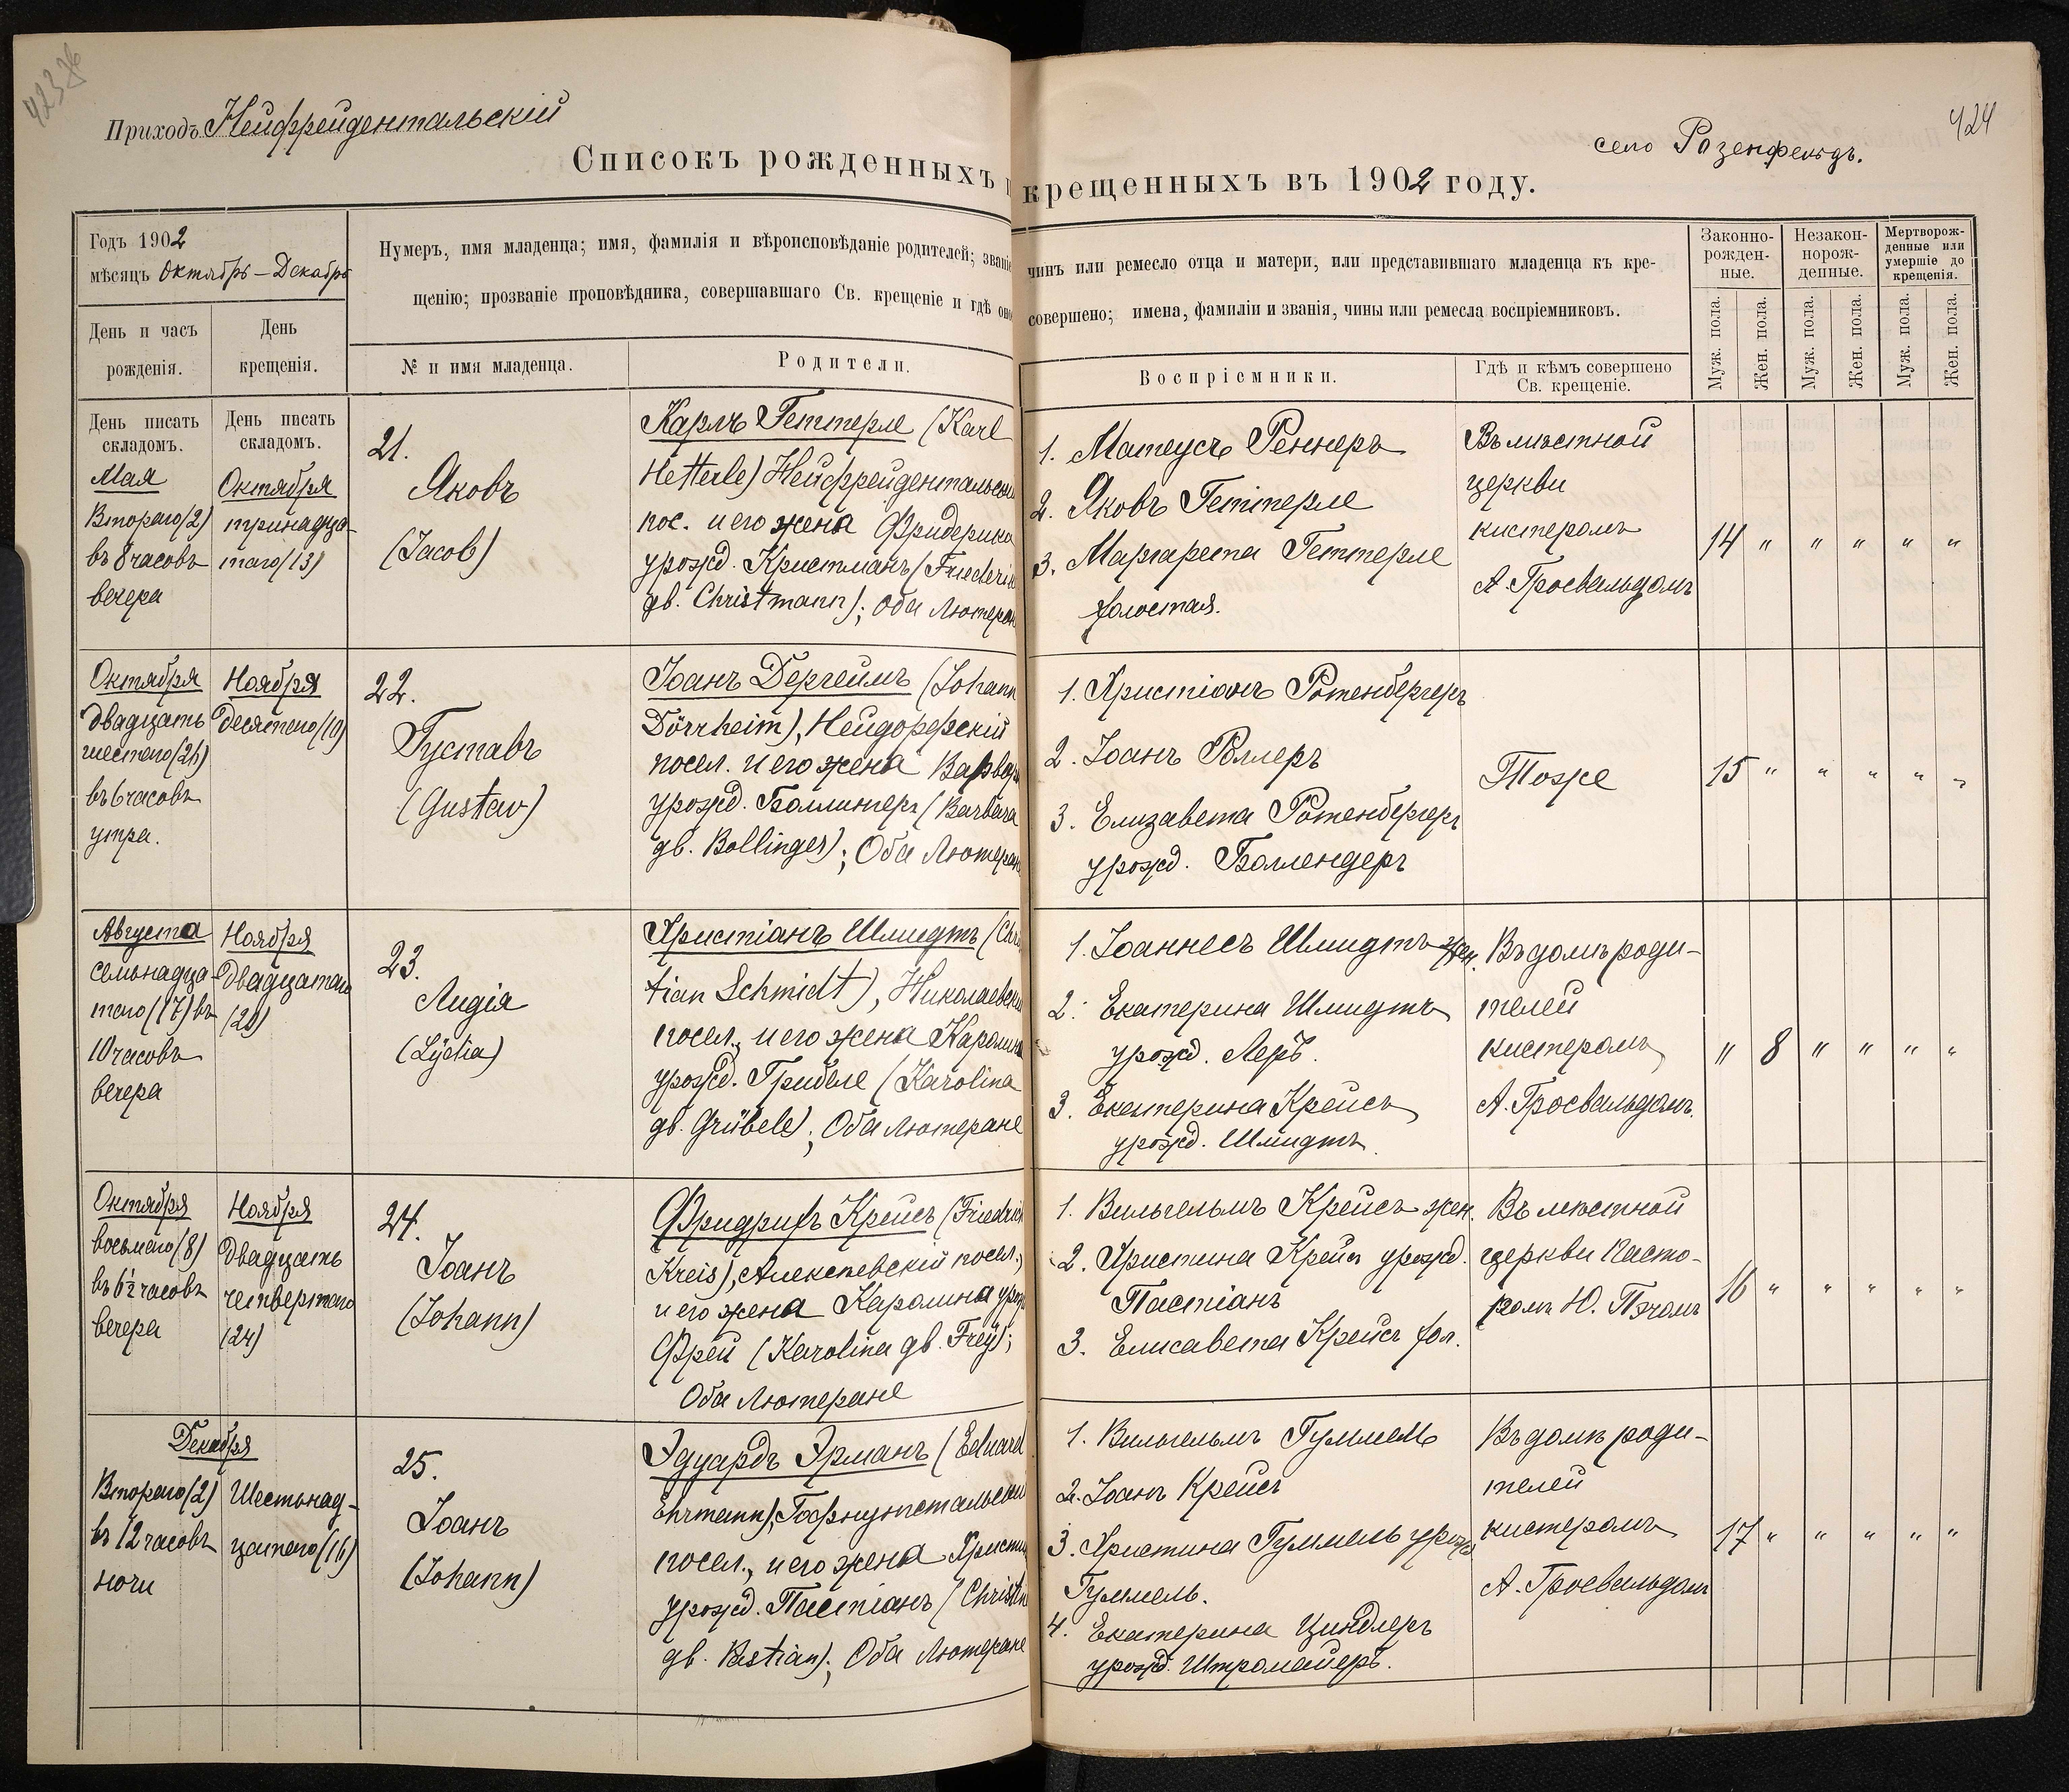 423 об
Приходъ Нейфрейдентальскій
Списокъ рожденныхъ
Годъ 1902
мѣсяцъ Октябрь – Декабрь
Нумеръ, имя младенца; имя, фамилія и вѣроисповѣданіе родителей; званіе
щенію; прозваніе проповѣдника, совершавшаго Св. крещеніе и гдѣ оно
День и часъ рожденія.
День крещенія.
№ и имя младенца.
Родители.
День писать складомъ.
День писать складомъ.
Мая
Второго (2)
въ 8 часовъ
вечера
Октября
тринадца-
таго (13)
21.
Яковъ
(Jacob)
Карлъ Геттерле (Karl
Hetterle) Нейфрейдентальскій
пос. и его жена Фридерика
урожд. Кристманъ (Friederike
gb. Christmann); Оба Лютеране
Октября
двадцать
шестаго (26)
въ 6 часовъ
утра.
Ноября
десятаго (10)
22.
Густавъ
(Gustav)
Іоанъ Дергеймъ (Johann
Dörrheim), Нейдорфскій
посел. и его жена Варвара
урожд. Боллингеръ (Barbara
gb. Bollinger); Оба Лютеране
Августа
семьнадца-
таго (17) въ
10 часовъ
вечера
Ноября
Двадцатаго
(20)
23.
Лидія
(Lydia)
Христіанъ Шмидтъ (Chris
tian Schmidt), Николаевскій
посел., и его жена Каролина
урожд. Грибеле (Karolina
gb. Grübele); Оба Лютеране
Октября
восьмаго (8)
въ 6½ часовъ
вечера
Ноября
Двадцать
четвертаго
(24)
24.
Іоанъ
(Johann)
Фридрихъ Крейсъ (Friedrich
Kreis), Алексѣевскій посел.,
и его жена Каролина урожд
Фрей (Karolina gb. Frey);
Оба Лютеране
Декабря
Второго (2)
въ 12 часовъ
ночи
Шестьнад-
цатаго (16)
25.
Іоанъ
(Johann)
Эдуардъ Эрманъ (Eduard
Ehrmann), Гофнунгстальскій
посел., и его жена Христина
урожд. Пастіанъ (Christine
gb. Bastian); Оба Лютеране
424
село Розенфельдъ.
крещенныхъ въ 1902 году.
чинъ или ремесло отца и матери, или представившаго младенца къ кре-
совершено; имена, фамиліи и званія, чины или ремесла воспріемниковъ.
Законно-
рожден-
ные.
Незакон-
норож-
денные.
Мертворож-
денные или
умершіе до
крещенія.
Воспріемники.
Гдѣ и кѣмъ совершено
Св. крещеніе.
Муж. пола.
Жен. пола.
Муж. пола.
Жен. пола.
Муж. пола.
Жен. пола.
1. Матеусъ Реннеръ
2. Яковъ Геттерле
3. Маргарета Геттерле
холостая.
Въ мѣстной
церкви
кистеромъ
А. Гросвальдомъ
14 " " " " "
1. Христіанъ Ротенбергеръ
2. Іоанъ Роллеръ
3. Елизавета Ротенбергеръ
урожд. Боллендеръ
Тоже
15 " " " " "
1. Іоаннесъ Шмидтъ жен.
2. Екатерина Шмидтъ
урожд. Леръ.
3. Екатерина Крейсъ
урожд. Шмидтъ.
Въ домѣ роди-
телей
кистеромъ
А. Гросвальдомъ.
" 8 " " " "
1. Вильгельмъ Крейсъ жен.
2. Христина Крейсъ урожд.
Пастіанъ
3. Елисавета Крейсъ хол.
Въ мѣстной
церкви Пасто-
ромъ Ю. Пэчомъ
16 " " " " "
1. Вильгельмъ Гуммель
2. Іоанъ Крейсъ
3. Христина Гуммель урожд
Гуммель.
4. Екатерина Циндлеръ
урожд. Штромайеръ.
Въ домѣ роди-
телей
кистеромъ
А. Гросвальдомъ
17 " " " " "